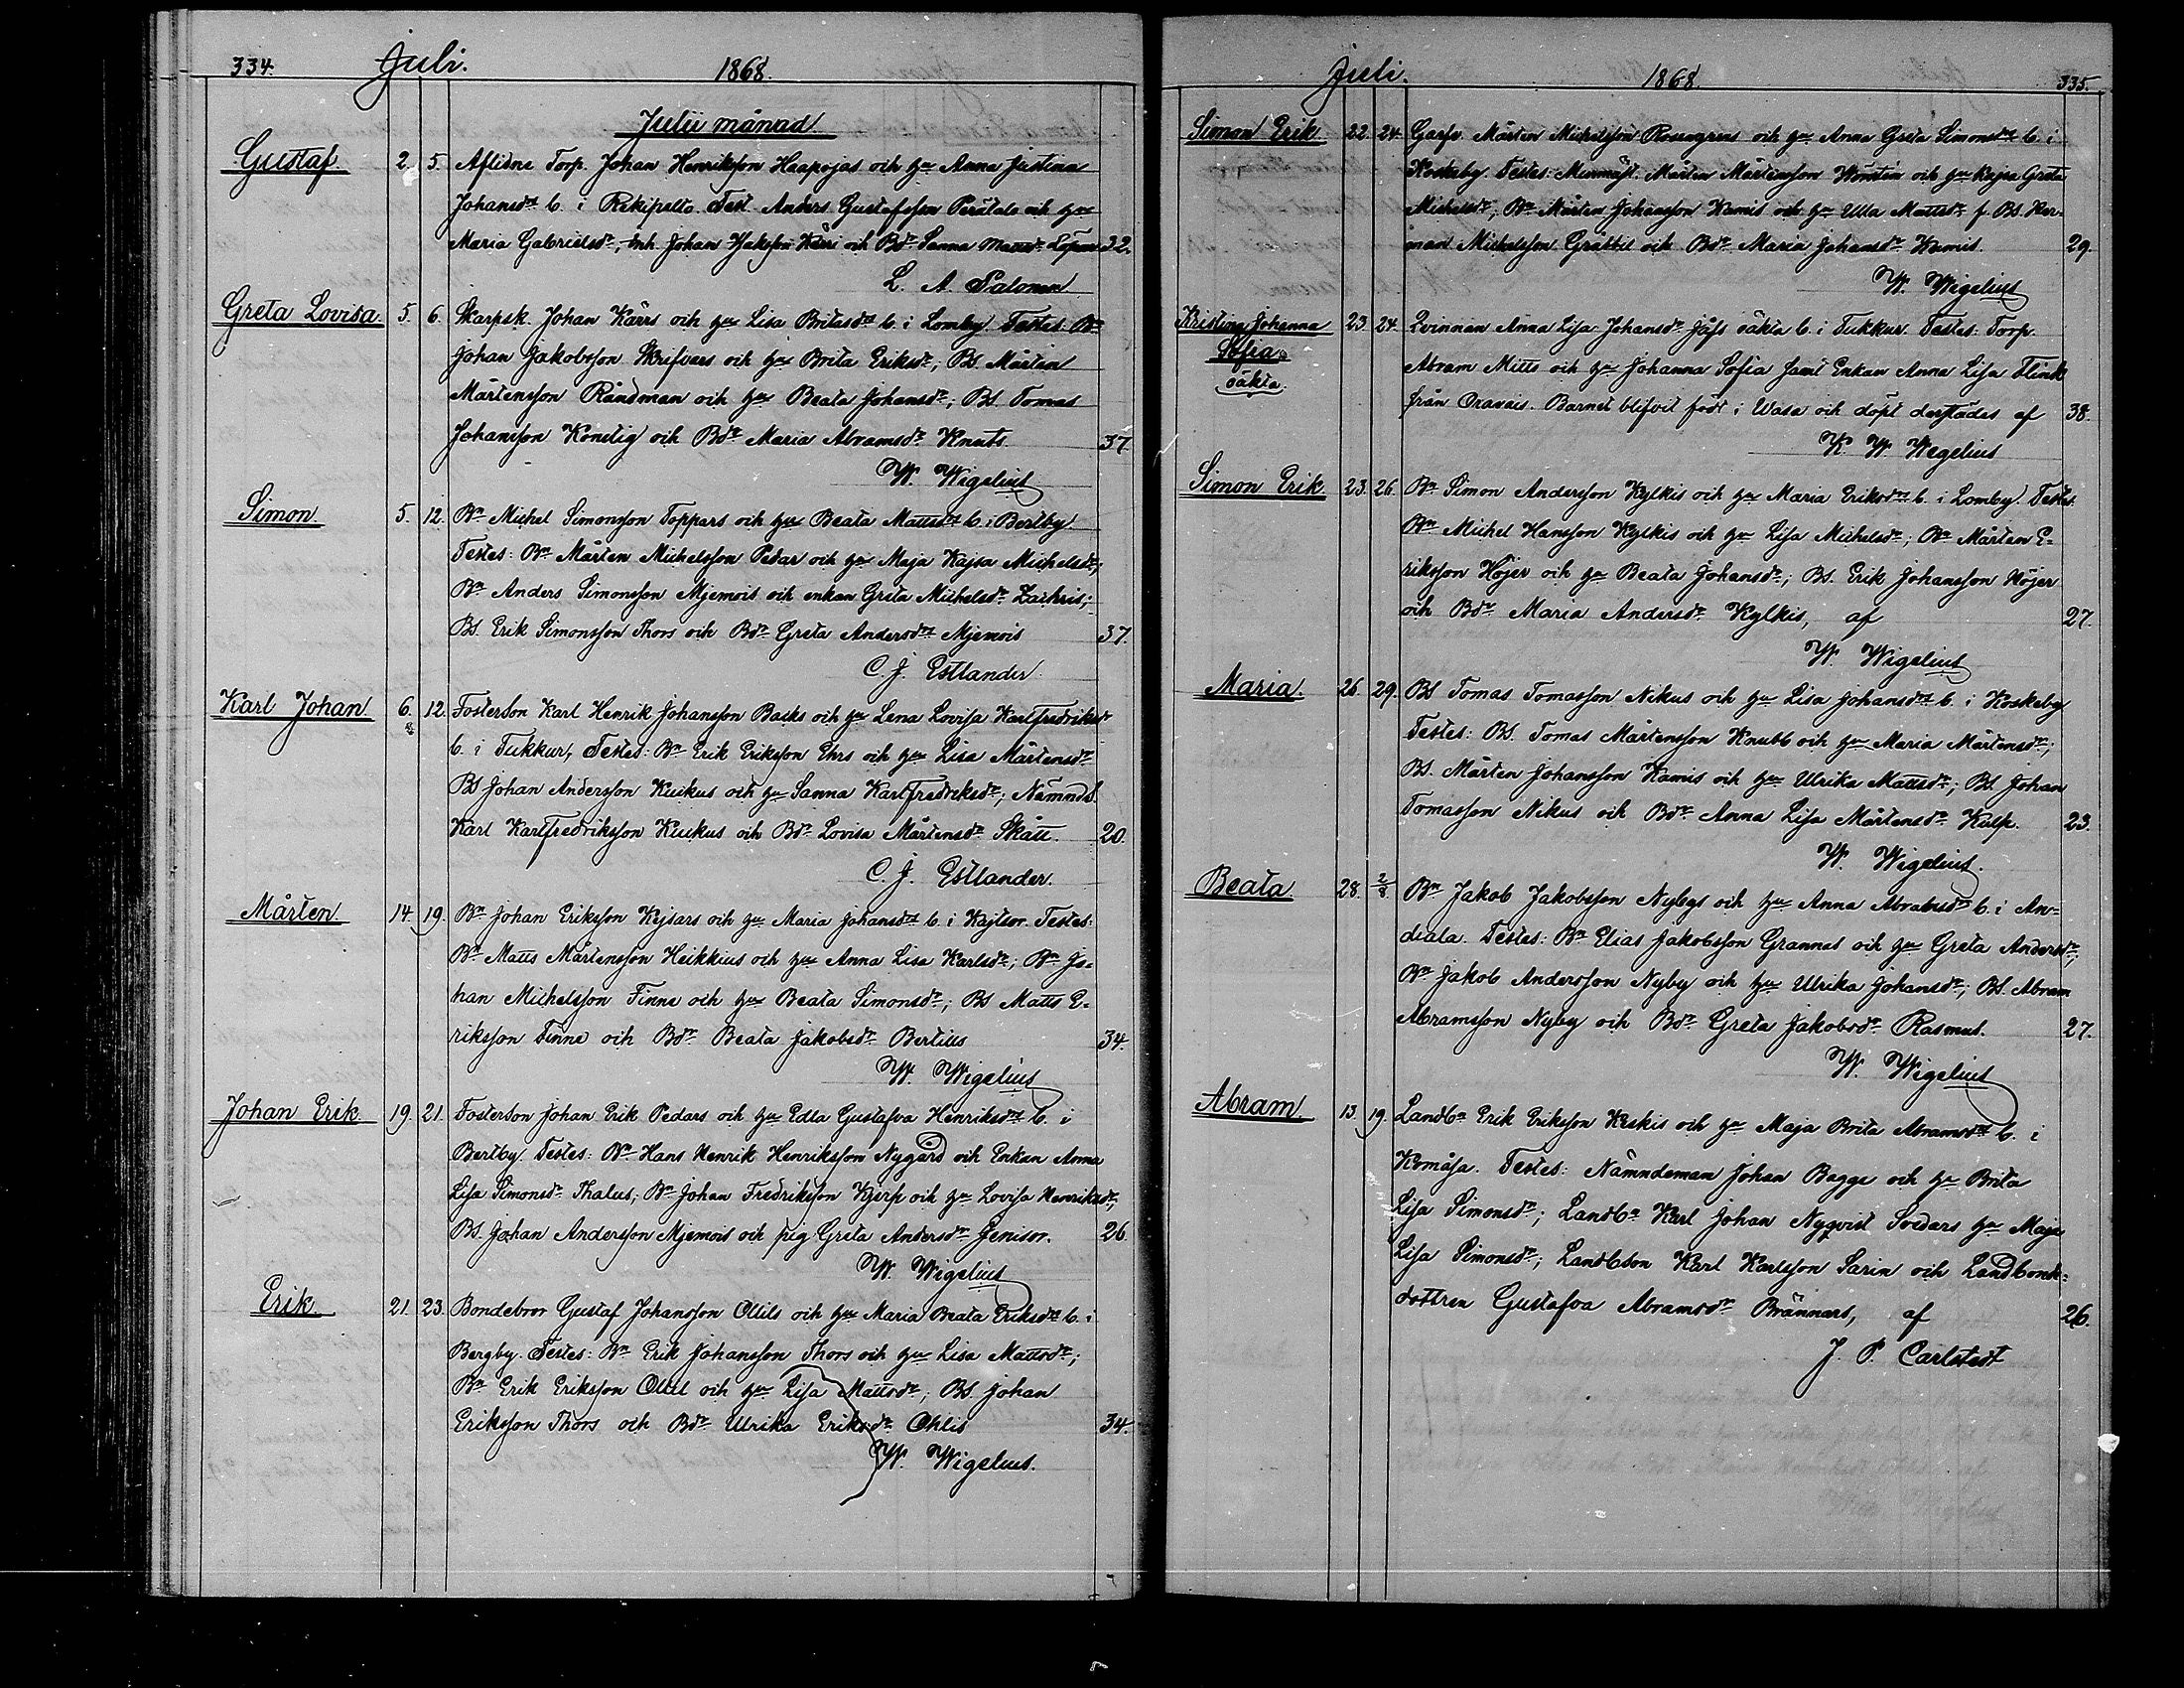 334. Juli. 1868.
Julii månad.
Gustaf 2. 5. Aflidne Torp. Johan Henriksson Haapojas och hu Anna Justina
Johansdr b. i Rekipelto. Test. Anders Gustafsson Perätalo och hu
Maria Gabrielsdr, Inh. Johan Isaksson Kärri och Bdr Sanna Mattsdr 32.
L. A. Salonen
Greta Lovisa. 5. 6. Skarpsk. Johan Kärrs och hu Lisa Britasdr b. i Lomby. Testes. Bn
Johan Jakobsson Skrifvars och hu Brita Eriksdr; BS. Mårten
Mårtensson Råndman och hu Beata Johansdr; BS. Tomas
Johansson Konstig och Bdr Maria Abramsdr Knuts. 37.
W. Wigelius
Simon. 5. 12. Bn Michel Simonsson Toppars och hu Beata Mattsdr b. i Bertby
Testes: Bn Mårten Michelsson Pedar och hu Maja Kajsa Michelsdr;
Bn Anders Simonsson Mjemois och enkan Greta Michelsdr Zachris;
BS. Erik Simonsson Thors och Bdr Greta Andersdr Mjemois 37.
C. J. Estlander.
Karl Johan 6. 12. Fosterson Karl Henrik Johansson Backs och hu Lena Lovisa Karlfredriksdr
b. i Tukkur, Testes: Bn Erik Eriksson Ehrs och hu Lisa Mårtensdr
BS Johan Andersson Kuckus och hu Sanna Karlfredriksdr; Nämnd.
Karl Karlfredriksson Kuckus och Bdr Lovisa Mårtensdr Skått. 20.
C. J. Estlander.
Mårten 14. 19. Bn Johan Eriksson Kejsars och hu Maria Johansdr b. i Kajtsor. Testes:
Bn Matts Mårtensson Heikkius och hu Anna Lisa Karlsdr; Bn Jo-
han Michelsson Finne och hu Beata Simonsdr; BS Matts E-
riksson Finne och Bdr Beata Jakobsdr Bertills 34.
W. Wigelius
Johan Erik 19. 21. Fosterson Johan Erik Pedars och hu Edla Gustafva Henriksdr b. i
Bertby. Testes: Bn Hans Henrik Henriksson Nygård och Enkan Anna
Lisa Simonsdr Thalus; Bn Johan Fredriksson Kjerp och hu Lovisa Henriksdr;
BS. Johan Andersson Mjemois och pig Greta Andersdr Jenisor. 26
W. Wigelius
Erik 21. 23. Bondebror Gustaf Johansson Ollils och hu Maria Beata Eriksdr b. i
Bergby. Testes: Bn Erik Johansson Thors och hu Lisa Mattsdr;
Bn Erik Eriksson Ollil och hu Lisa Mattsdr; BS. Johan
Eriksson Thors och Bdr Ulrika Eriksdr Ohlis 34.
W. Wigelius.
Juli. 1868. 335.
Simon Erik 22. 24. Garfv. Mårten Michelsson Rosengrens och hu Anna Greta Simonsdr b. i
Koskeby. Testes: Mårten Mårtensson och hu Kajsa Greta
Michelsdr, Bn Mårten Johansson Kamis och hu Ulla Mattsdr f. BS. Her-
man Michelsson Gräbbil och Bdr Maria Johansdr Kamis. 29.
W. Wigelius
Kristina Johanna 23. 24. Qvinnan Anna Lisa Johansdr Jåfs oäkta b. i Tukkur. Testes: Torp.
Sofia Abram Mitts och hu Johanna Sofia samt Enkan Anna Lisa Flink
oäkta. från Oravais. Barnet blifvit födt i Wasa och döpt derstädes af 38.
K. W. Wegelius
Simon Erik 23. 26. Bn Simon Andersson Kylkis och hu Maria Eriksdr b. i Lomby. Testes
Bn Michel Hansson Kylkis och hu Lisa Michelsdr; Bn Mårten E-
riksson Höjer och hu Beata Johansdr; BS. Erik Johansson Höjer
och Bdr Maria Andersdr Kylkis, af 27.
W. Wigelius
Maria. 26. 29. BS Tomas Tomasson Nikus och hu Lisa Johansdr b. i Koskeby
Testes: BS. Tomas Mårtensson Knubb och hu Maria Mårtensdr;
BS. Mårten Johansson Kamis och hu Ulrika Mattsdr; BS. Johan
Tomasson Nikus och Bdr Anna Lisa Mårtensdr Kulp. 23.
W. Wigelius.
Beata 28. 2/8. Bn Jakob Jakobsson Nybys och hu Anna Abramsdr b. i An-
diala. Testes: Bn Elias Jakobsson Grannas och hu Greta Andersdr;
Bn Jakob Andersson Nyby och hu Ulrika Johansdr; BS. Abram
Abramsson Nyby och Bdr Greta Jakobsdr Rasmus. 27.
W. Wigelius
Abram 13. 19. Landbn Erik Eriksson Keskis och hu Maja Brita Abramsdr b. i
Komåsa. Testes: Nämndeman Johan Bagge och hu Brita
Lisa Simonsdr; Landbn Karl Johan Nyqvist Svedars hu Maja
Lisa Simonsdr; Landbson Karl Karlsson Sarin och Landbonde-
dottren Gustafva Abramsdr Brännars, af 26.
J. P. Carlstedt